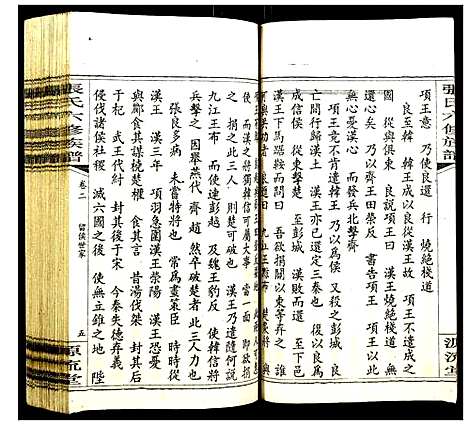 張氏六修族譜
源流堂
項王意 乃使良還 行 燒絕棧道
良至韓 韓王成以良從漢王故 項王不遣成之
國 從與俱東 良說項王曰 漢王燒絕棧道 無
還心矣 乃以齊王田榮反 書告項王 項王以此
無憂漢心 而發兵北擊齊
項王竟不肯遣韓王 乃以為侯 又殺之彭城 良
亡 間行歸漢王 漢王亦已還定三秦矣 復以良為
成信侯 從東擊楚 至彭城 漢敗而還 至下邑
漢王下馬踞鞍而問曰 吾欲捐關以東等弃之 誰
可與共功者 良進曰 九江王黥布 楚梟將
而漢王之將獨韓信可屬大事 當一面 即欲捐
之 捐之此三人 則楚可破也 漢王乃遣隨何說
九江王布 而使人連彭越 及魏王豹反 使韓信將
兵擊之 因舉燕代齊趙 然卒破楚者 此三人力也
張良多病 未嘗特將也 常為畫策臣 時時從
漢王 漢三年 項羽急圍漢王滎陽 漢王恐憂
與酈食其謀橈楚權 食其曰 昔湯伐桀 封其后
於杞 武王伐紂 封其後于宋 今秦失德弃義
侵伐諸侯社稷 滅六國之後 使無立錐之地 陛
張氏六修族譜
卷二
留侯世家
五
源流堂